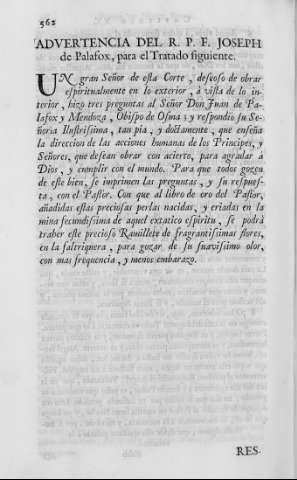 562
ADVERTENCIA DEL R. P. F. JOSEPH
de Palafox, para el Tratado siguiente.
UN gran Señor de esta Corte, deseoso de obrar
espiritualmente en lo exterior, à vista de lo in-
terior, hizo tres preguntas al Señor Don Juan de Pa-
lafox y Mendoza, Obispo de Osma; y respondio su Se-
ñoria Ilustrisima, tan pia, y doctamente, que enseña
la direccion de las acciones humanas de los Principes, y
Señores, que desean obrar con acierto, para agradar à
Dios, y cumplir con el mundo. Para que todos gozen
de este bien, se imprimen las preguntas, y su respues-
ta, con el Pastor. Con que al libro de oro del Pastor,
añadidas estas preciosas perlas nacidas, y criadas en la
mina fecundisima de aquel extatico espiritu, se podrá
traher este precioso Ramillete de fragrantisimas flores,
en la faltriquera, para gozar de su suavisimo olor,
con mas frequencia, y menos embarazo.
RES-